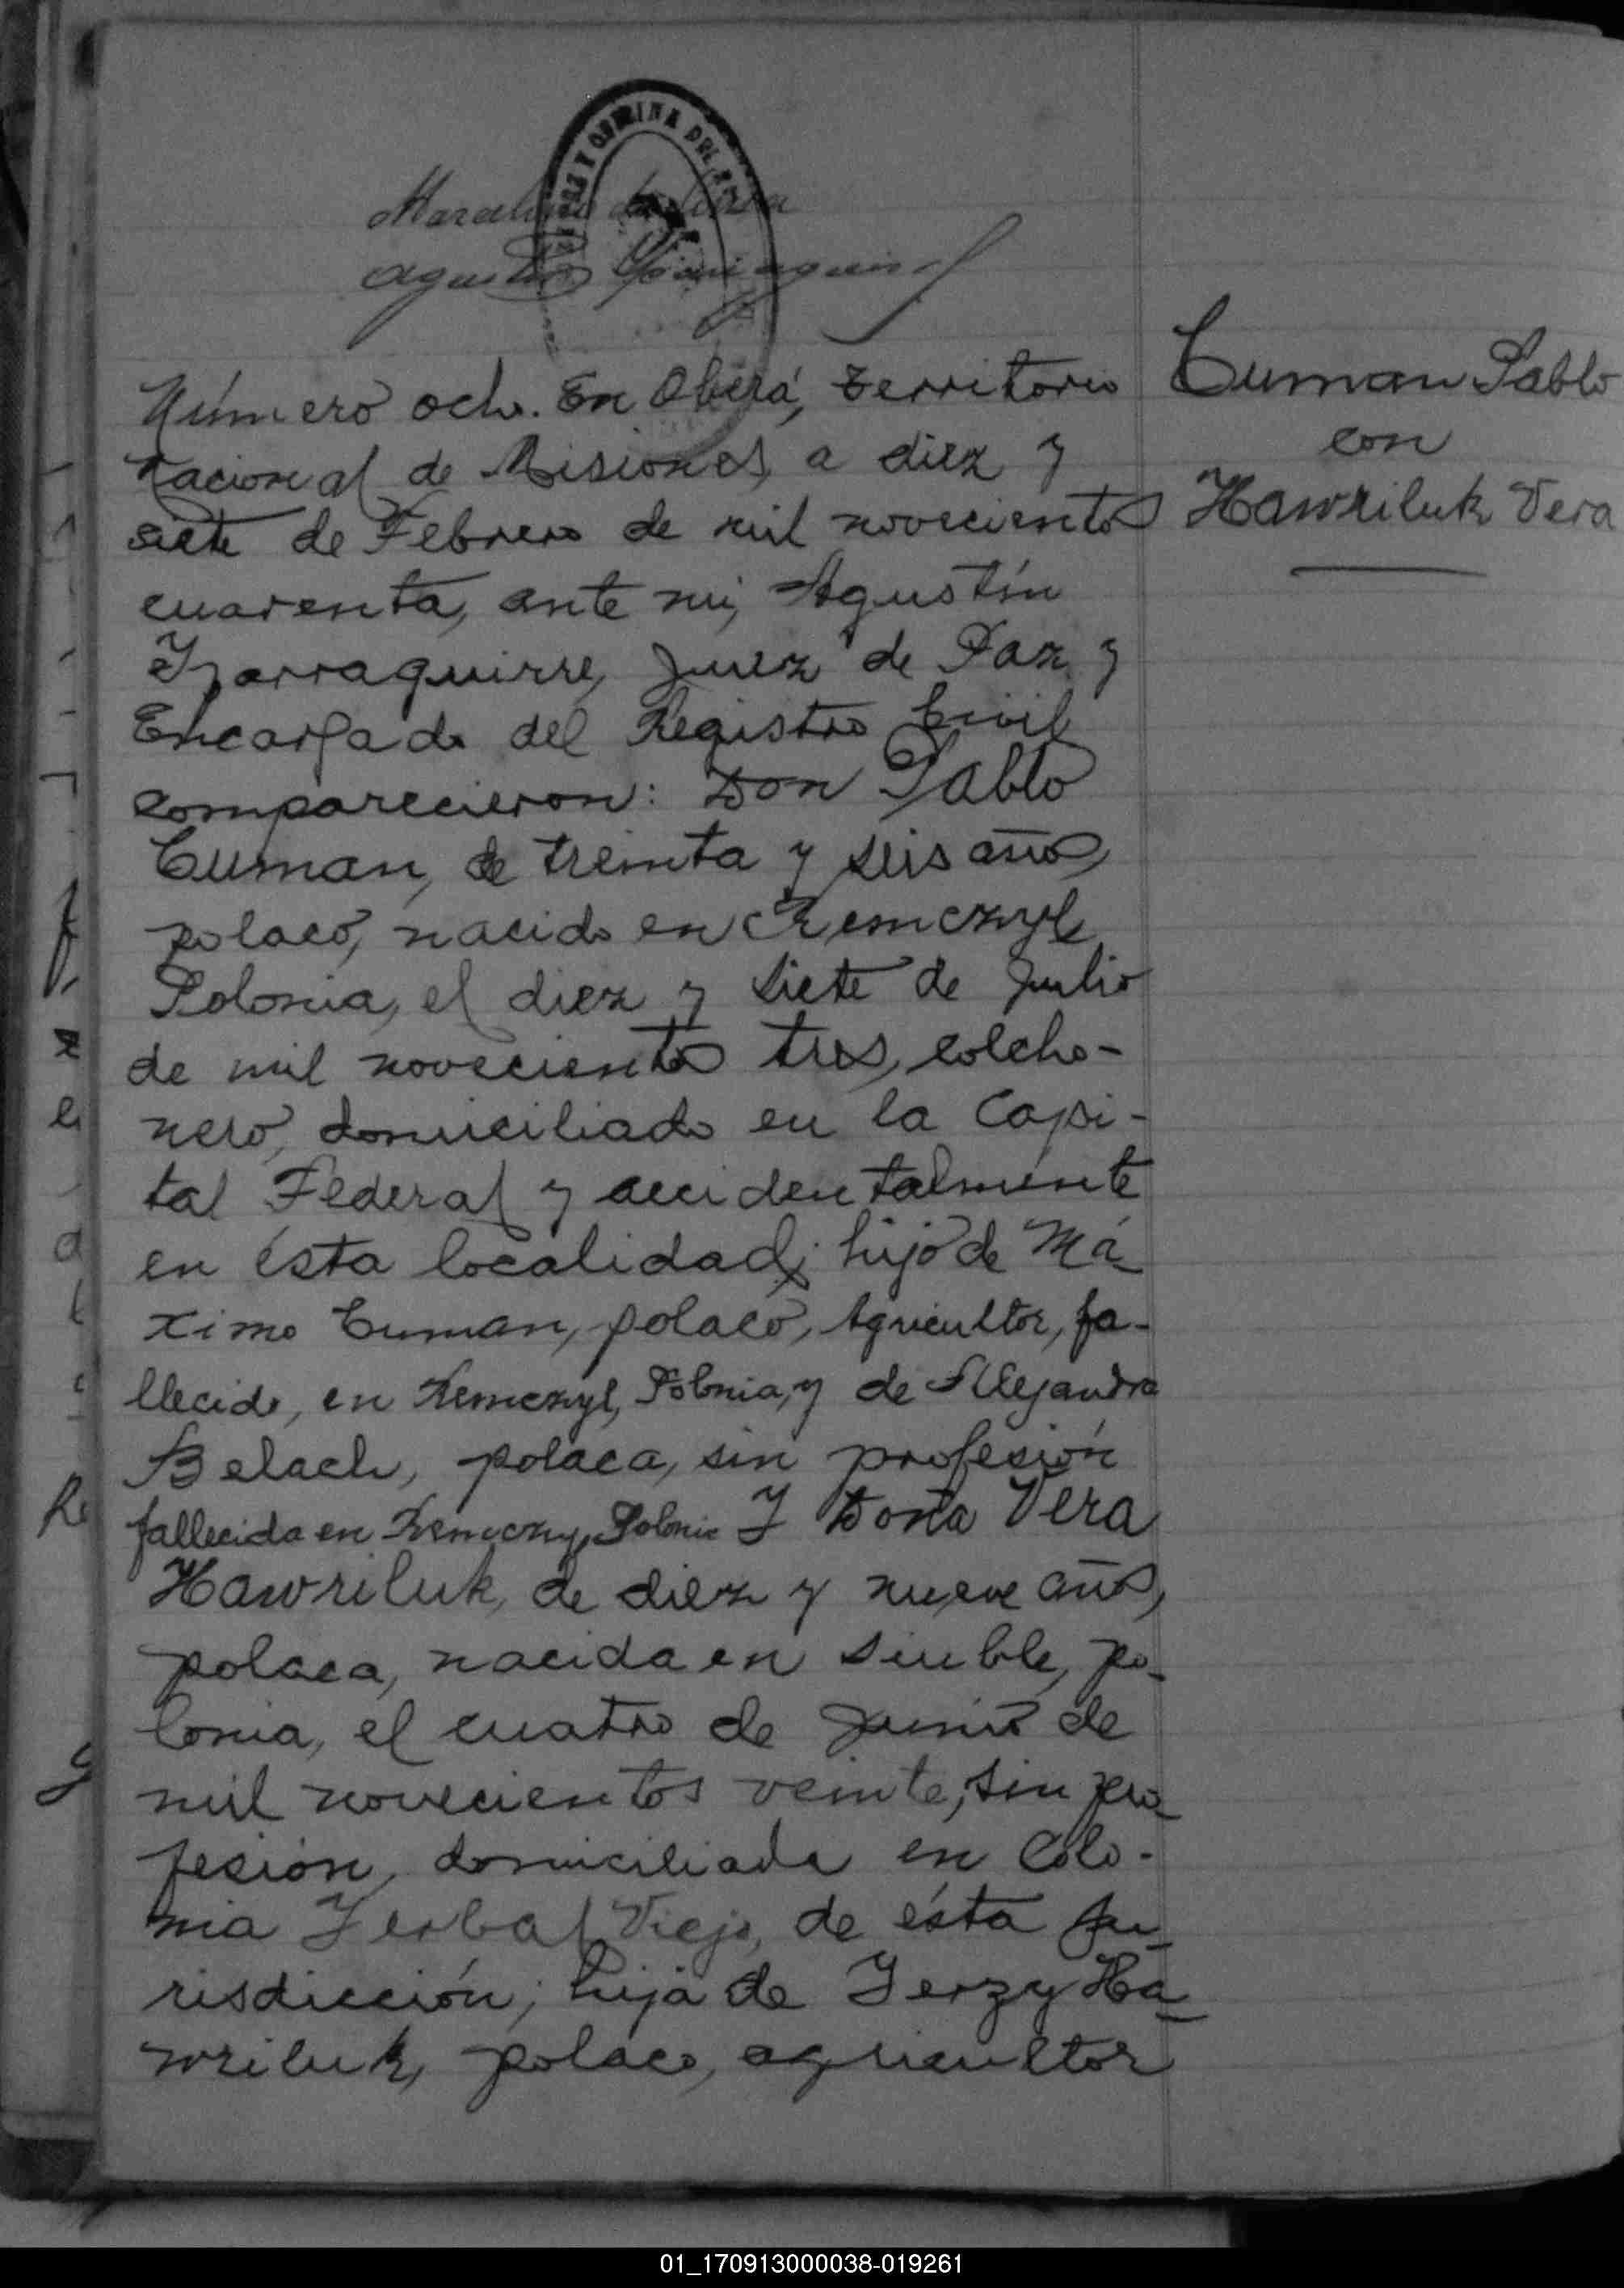 Marcelino
Agustin
Número ocho. En Oberá, Territorio
Nacional de Misiones, a diez y
siete de Febrero de mil novecientos
cuarenta, ante mi, Agustín
Yzarraguirre, Juez de Paz y
Encargado del Registro Civil
comparecieron: Don Pablo
Cuman, de treinta y seis años,
polaco, nacido en Remczyl,
Polonia, el diez y siete de Julio
de mil novecientos tres, colcho-
nero, domiciliado en la Capi-
tal Federal y accidentalmente
en ésta localidad; hijo de Má-
ximo Cuman, polaco, Agricultor, fa-
llecido, en Remczyl, Polonia, y de Alejandra
Belach, polaca, sin profesión
fallecida en Remczyl, Polonia Y Doña Vera
Hawriluk, de diez y nueve años,
polaca, nacida en Siuble, po-
lonia, el cuatro de Junio de
mil novecientos veinte, sin pro-
fesión, domiciliada en Colo-
nia Yerbal Viejo, de ésta ju-
risdicción; hija de Jerzy Ha-
wriluk, polaco, agricultor
Cuman Pablo
con
Hawriluk Vera
01_170913000038-019261